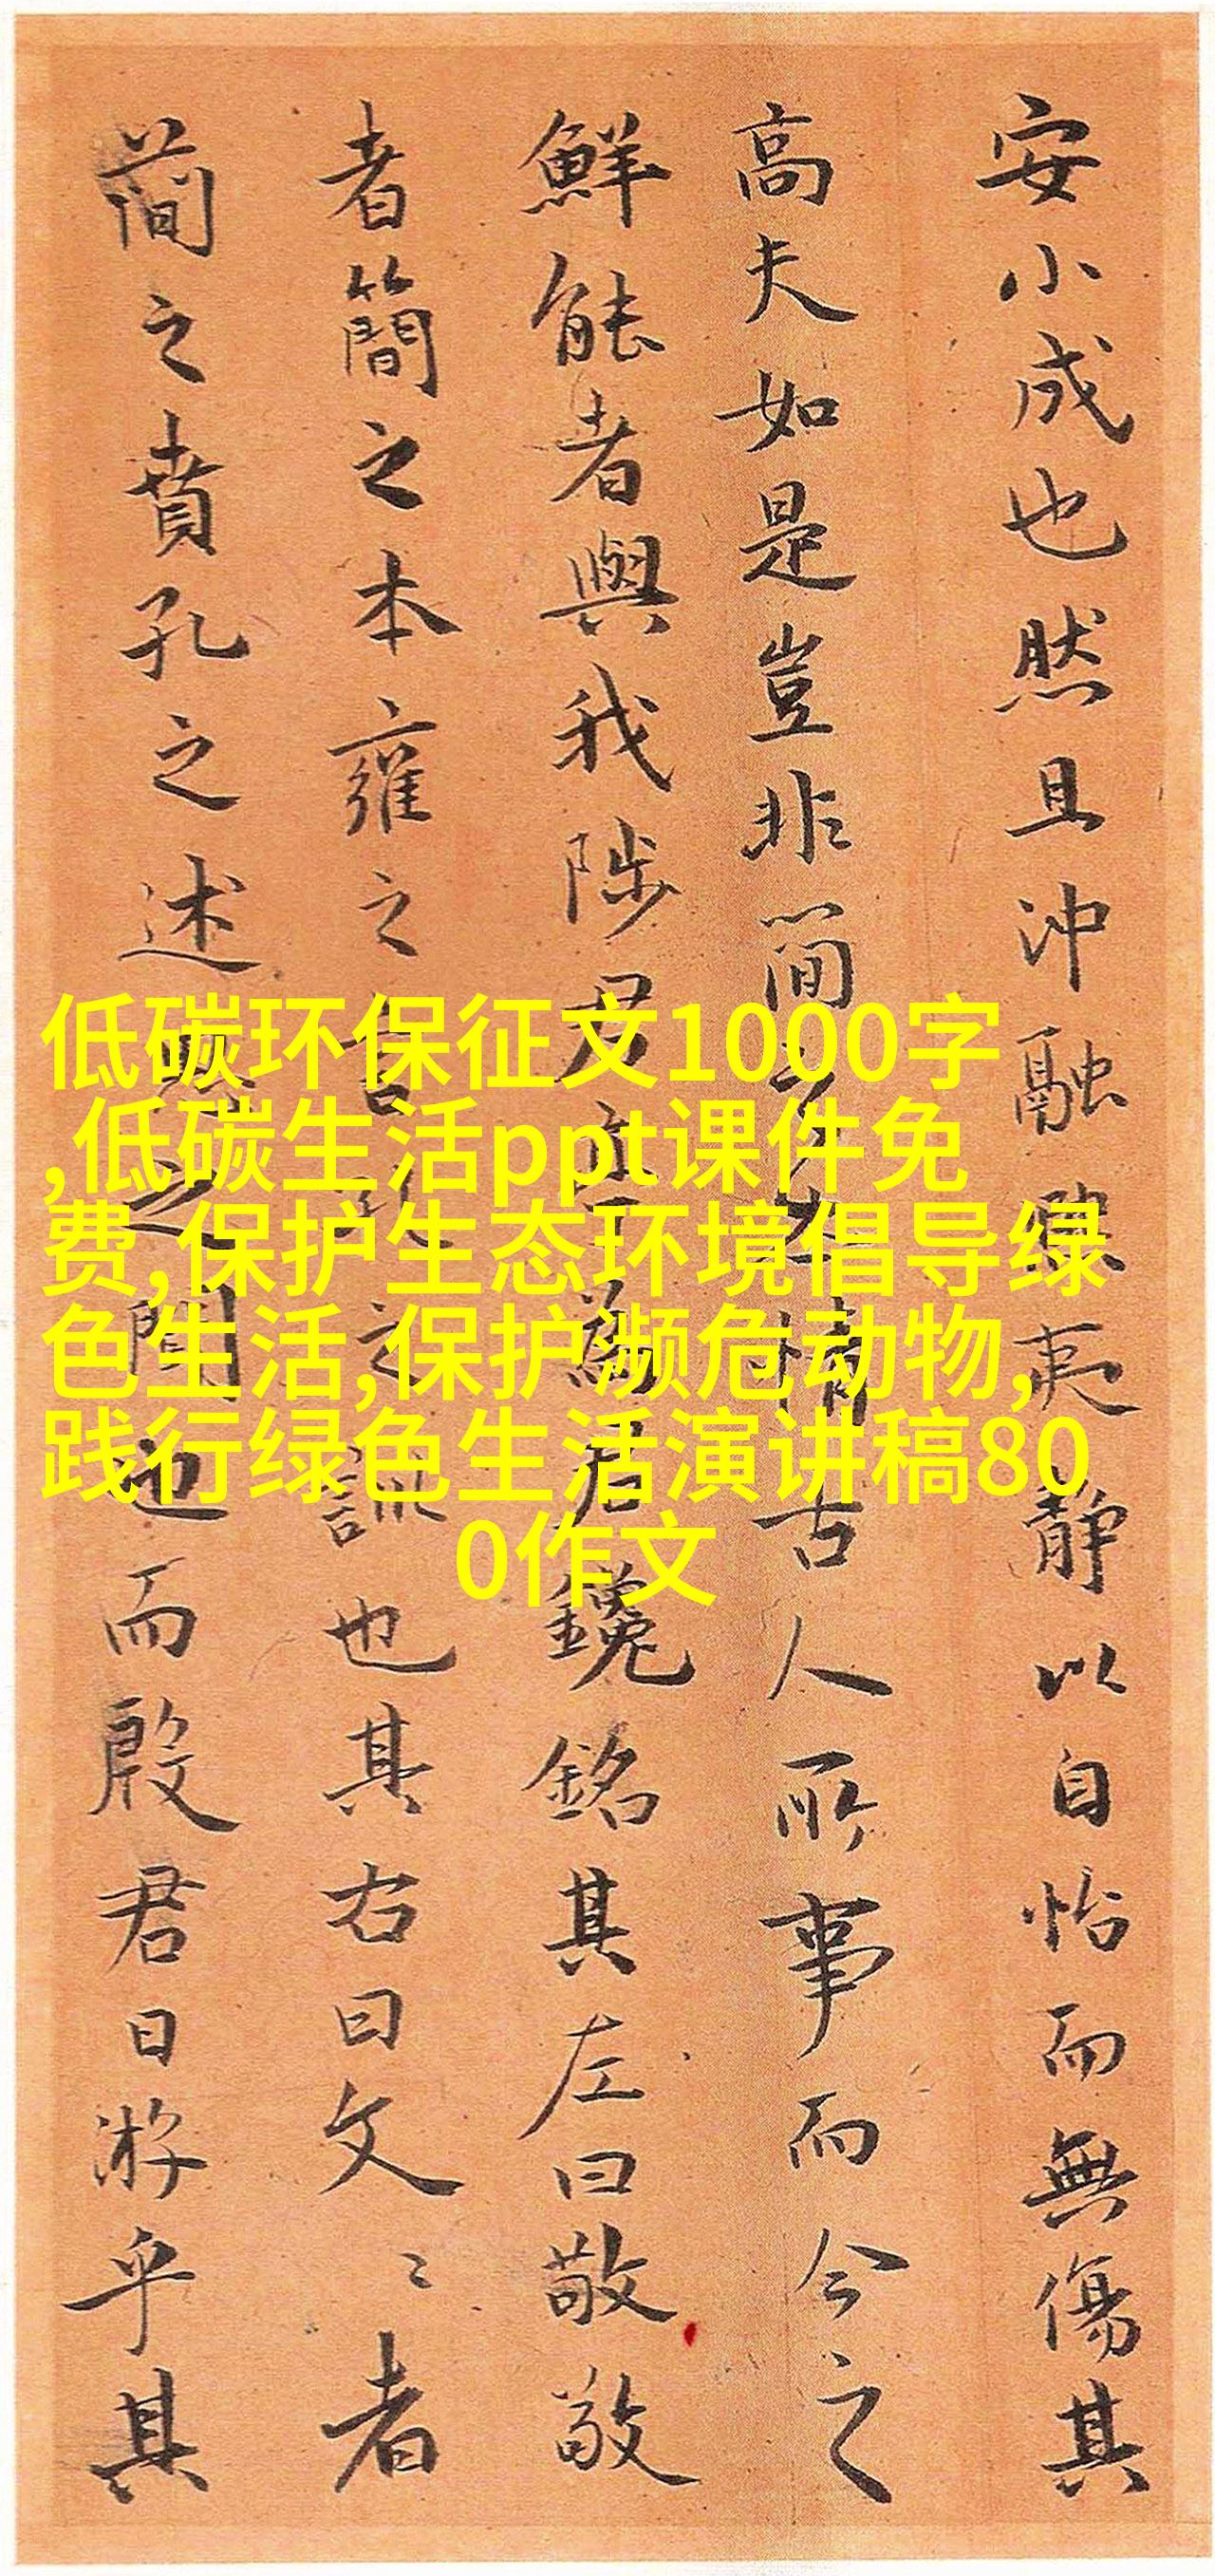 安小成也然且沖融夷靜以自怡而無傷其
高夫如是豈非簡之情古人所事而今之
鮮能者與我陟君為君鑱銘其左曰敬敬
者簡之本雍之言之訓也其右曰文〻者
簡之賁孔之述之聞也而殷君日游乎其
低碳环保征文1000字
,低碳生活ppt课件免
费,保护生态环境倡导绿
色生活,保护濒危动物,
践行绿色生活演讲稿80
0作文